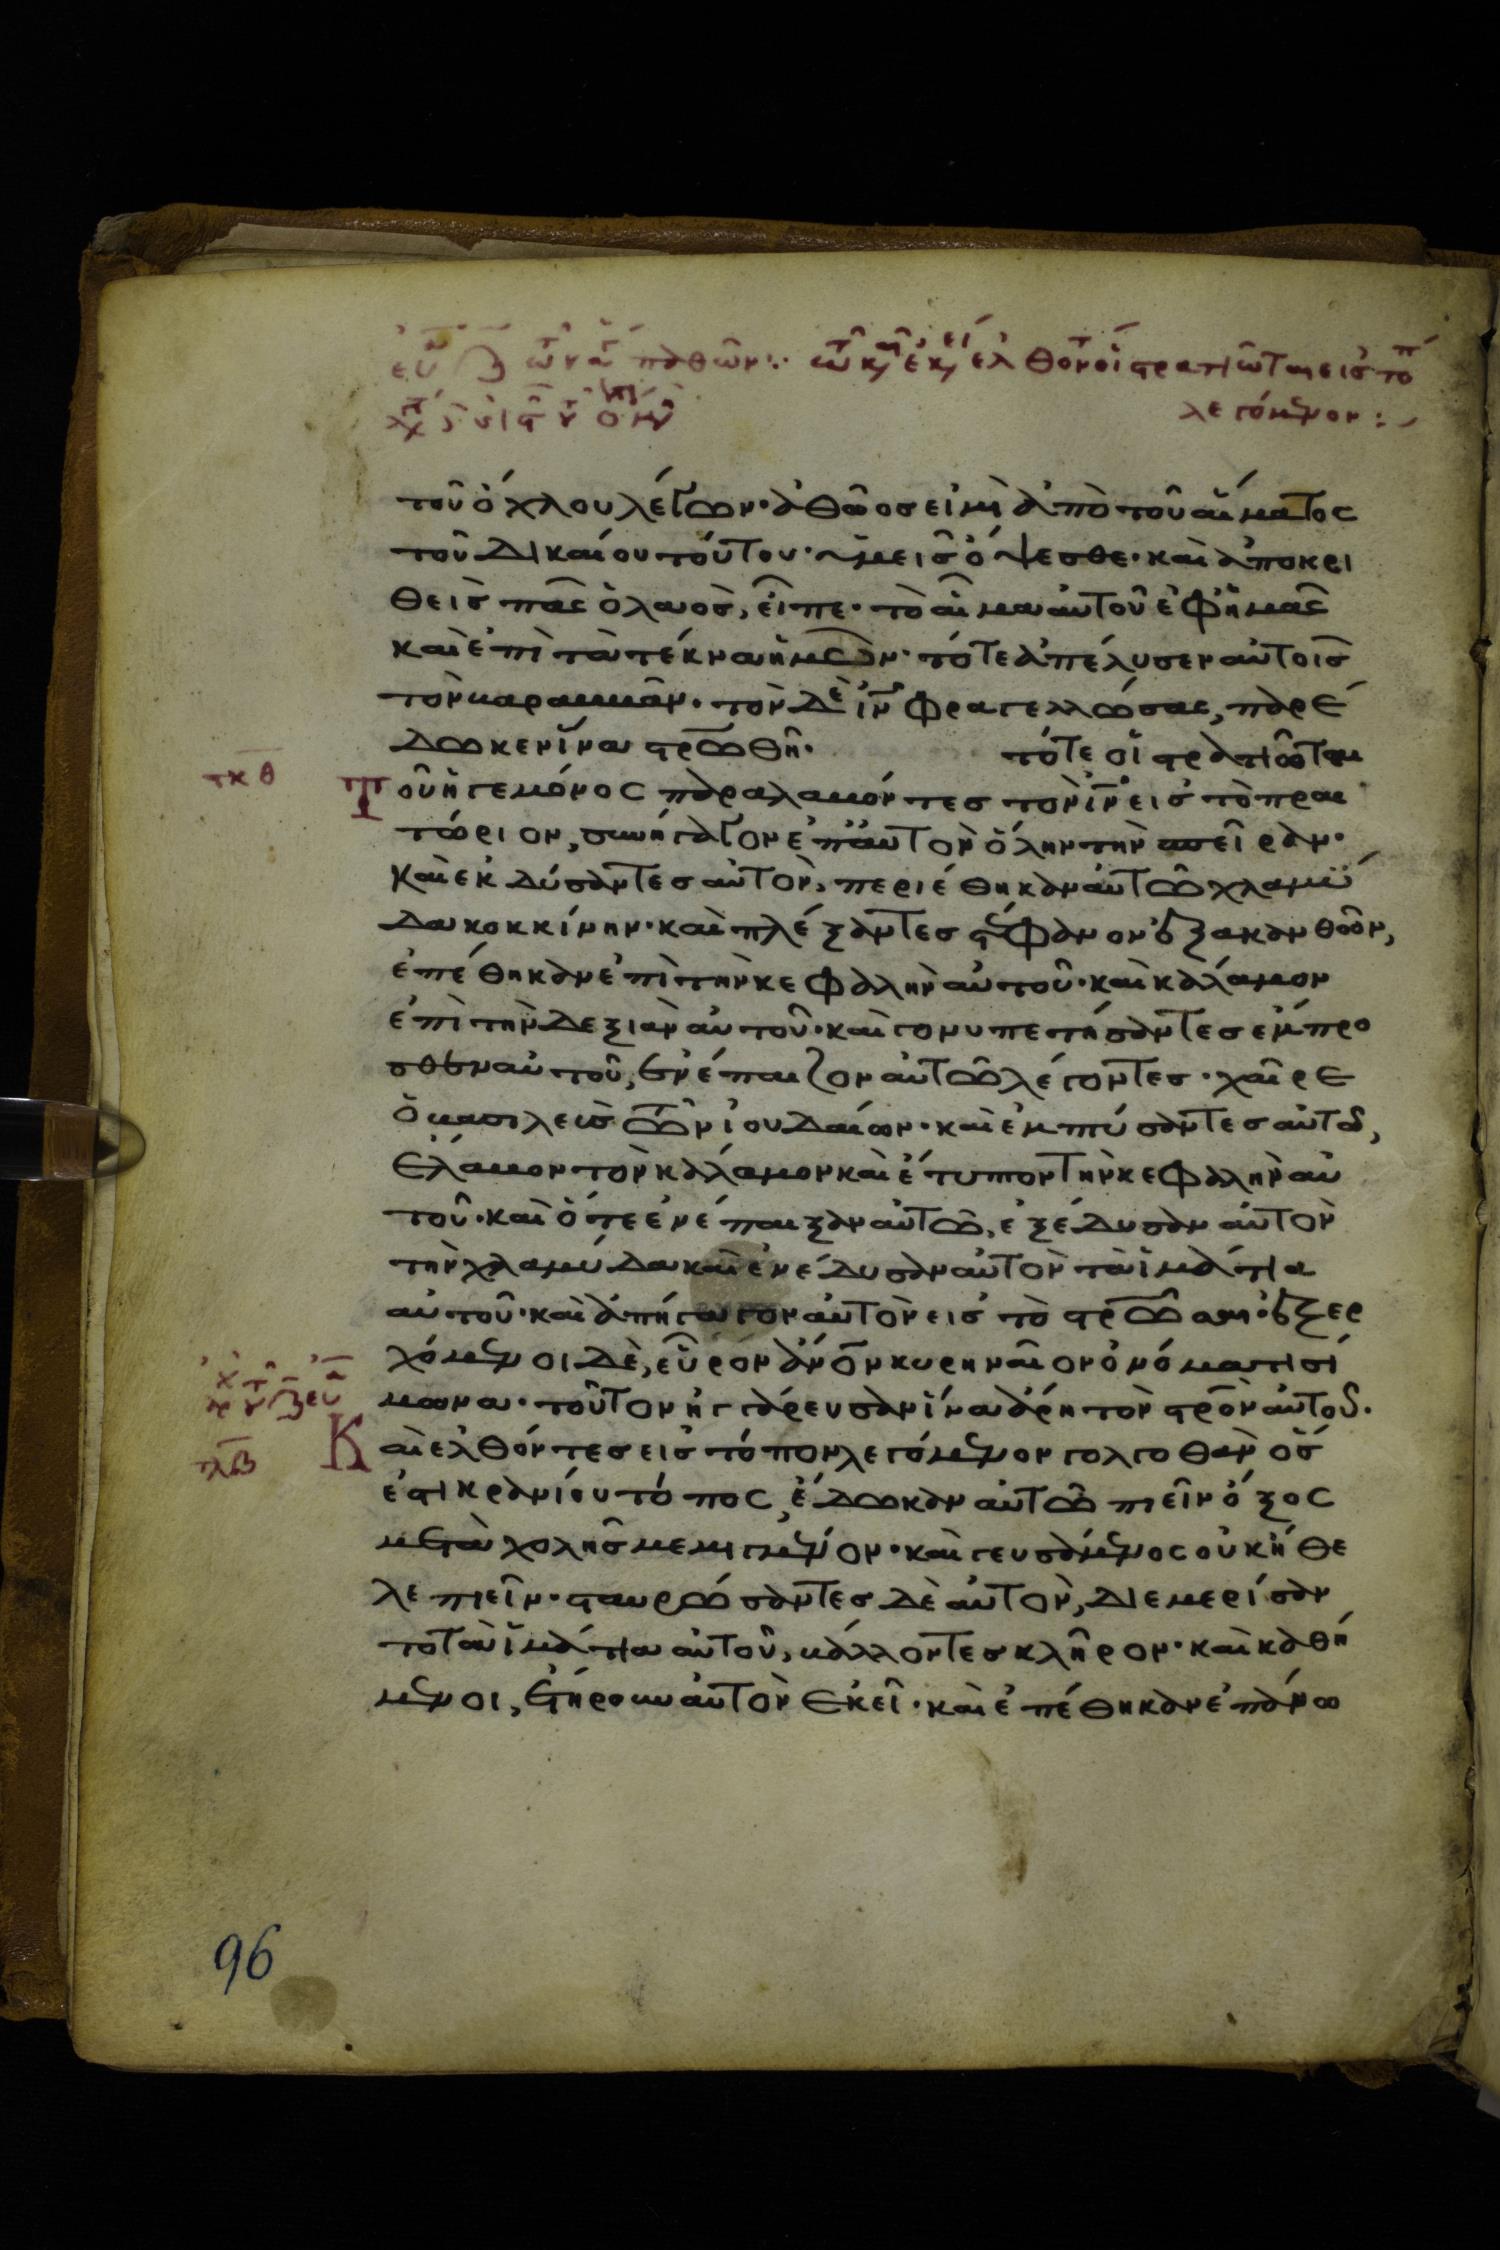 τοῦ ὄχλου λέγων· ἀθῶος εἰμὶ ἀπὸ τοῦ αἵματος
τοῦ δικαίου τούτου· ὑμεῖς ὄψεσθε· καὶ ἀποκρι
θεὶς πᾶς ὁ λαὸς, εἶπε· τὸ αἷμα αὐτοῦ ἐφ ἡμᾶς
καὶ ἐπὶ τὰ τέκνα ἡμῶν· τότε ἀπέλυσεν αὐτοῖς
τὸν βαραββᾶν· τὸν δὲ ιν φραγελλώσας, παρέ
δωκεν ἵνα στρωθῆ· τότε οἱ στρατιῶται
Τοῦ ἡγεμόνος παραλαβόντες τὸν ιν εἰς τὸ πραι
τώριον, συνήγαγον ἐπ αὐτὸν ὅλην τὴν σπεῖραν·
Καὶ ἐκδύσαντες αὐτὸν, περιέθηκαν αὐτῶ χλαμύ
δα κοκκίνην· καὶ πλέξαντες στέφανον ἐξ ἀκανθῶν,
ἐπέθηκαν ἐπὶ τὴν κεφαλὴν αὐτοῦ· καὶ κάλαμον
ἐπὶ τὴν δεξιὰν αὐτοῦ· καὶ γονυπετήσαντες ἔμπρο
σθεν αὐτοῦ, ἐνέπαιζον αὐτῶ λέγοντες· χαῖρε
ὁ βασιλεὺς τῶν ἰουδαίων· καὶ ἐμπτύσαντες αὐτῶ,
ἔλαβον τὸν κάλαμον καὶ ἔτυπτον τὴν κεφαλὴν αὐ
τοῦ· καὶ ὅτε ἐνέπαιξαν αὐτῶ, ἐξέδυσαν αὐτὸν
τὴν χλαμύδα καὶ ἐνέδυσαν αὐτὸν τὰ ἱμάτια
αὐτοῦ· καὶ ἀπήγαγον αὐτὸν εἰς τὸ στρωσαι· ἐξερ
χόμενοι δὲ, εὗρον ἀνον κυρηναῖον ὀνόματι σί
μωνα· τοῦτον ἠγγάρευσαν ἵνα ἄρη τὸν στρον αὐτοῦ·
Καὶ ἐλθόντες εἰς τόπον λεγόμενον γολγοθὰν ὅς
ἐστι κρανίου τόπος, ἔδωκαν αὐτῶ πιεῖν ὄξος
μετὰ χολῆς μεμιγμένον· καὶ γευσάμενος οὐκ ἤθε
λε πιεῖν· σταυρώσαντες δὲ αὐτὸν, διεμερίσαν
το τὰ ἱμάτια αὐτοῦ, βάλλοντες κλῆρον· καὶ καθή
μενοι, ἐτήρουν αὐτὸν ἐκεῖ· καὶ ἐπέθηκαν ἐπάνω
96